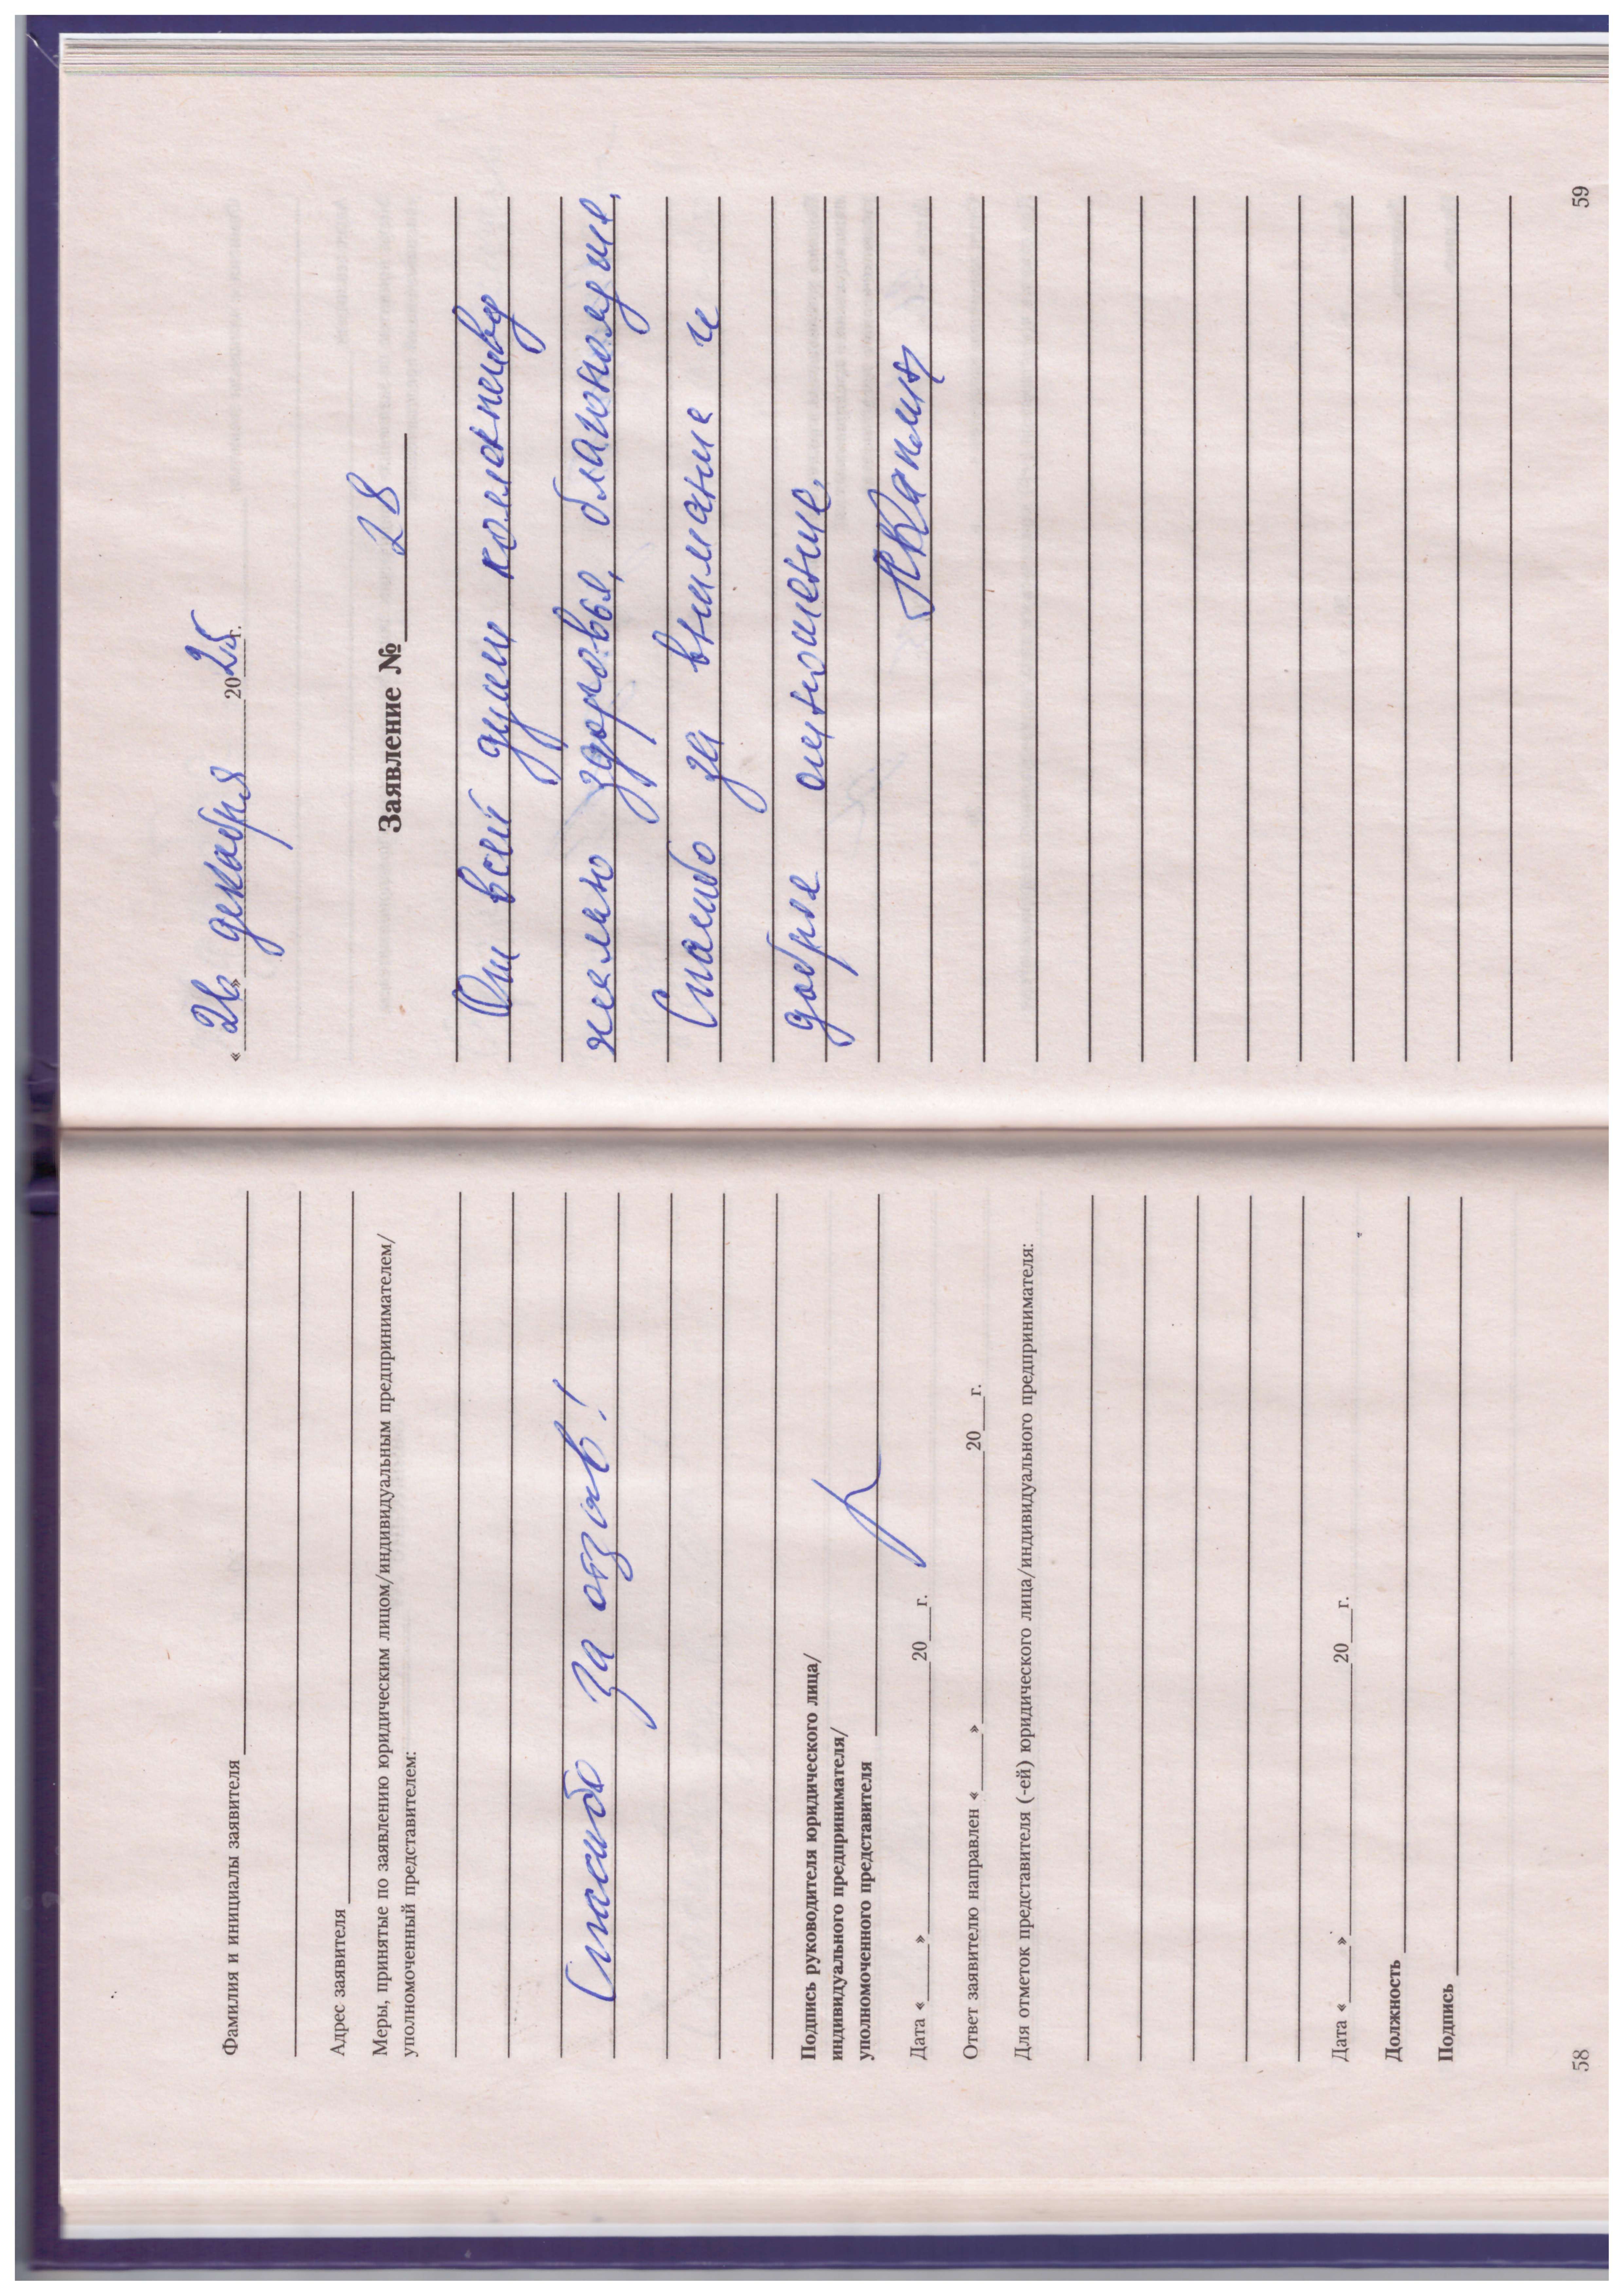 Фамилия и инициалы заявителя
Адрес заявителя
Меры, принятые по заявлению юридическим лицом/индивидуальным предпринимателем/
уполномоченный представителем:
Спасибо за отзыв!
Подпись руководителя юридического лица/
индивидуального предпринимателя/
уполномоченного представителя
Дата «____»____________20___г.
Ответ заявителю направлен «____»____________20___г.
Для отметок представителя (-ей) юридического лица/индивидуального предпринимателя:
Дата «____»____________20___г.
Должность
Подпись
58
«26» декабря 2025г.
Заявление № 28
От всей души коллективу
желаю здоровье, благополучие.
Спасибо за внимание и
доброе отношение.
59